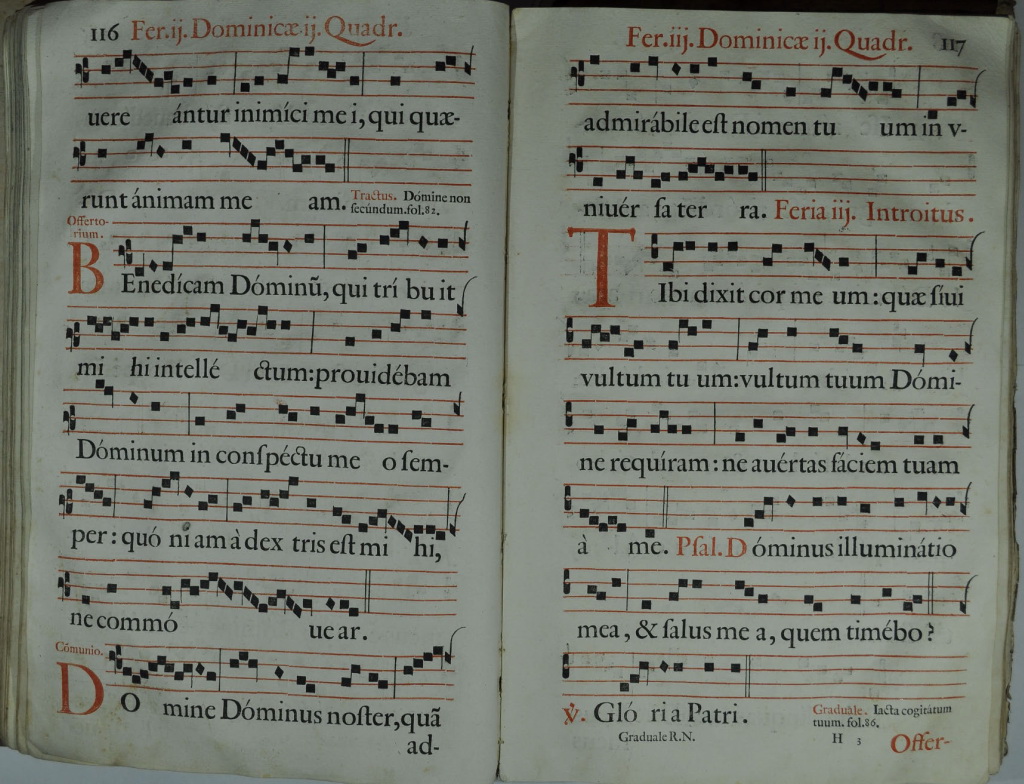 116 Fer.ij. Dominicæ ij. Quadr.
uere ántur inimíci me i, qui quæ-
runt ánimam me am. Tractus. Dómine non
secúndum.fol.82.
Offerto-
rium.
BEnedícam Dóminũ, qui trí bu it
mi hi intellé ctum: prouidébam
Dóminum in conſpéctu me o ſem-
per: quó ni am à dex tris eſt mi hi,
ne commó ue ar.
Cómunio.
DO mine Dóminus noſter, quã
ad-
Fer.iij. Dominicæ ij. Quadr. 117
admirábile eſt nomen tu um in v-
niuér ſa ter ra. Feria iij. Introitus.
TIbi dixit cor me um: quæ ſiui
vultum tu um: vultum tuum Dómi-
ne requíram: ne auértas fáciem tuam
à me. Pſal. Dóminus illuminátio
mea, & ſalus me a, quem timébo?
℣. Gló ri a Patri. Graduale. Iacta cogitátum
tuum. fol.86.
Graduale R.N. H 3 Offer-